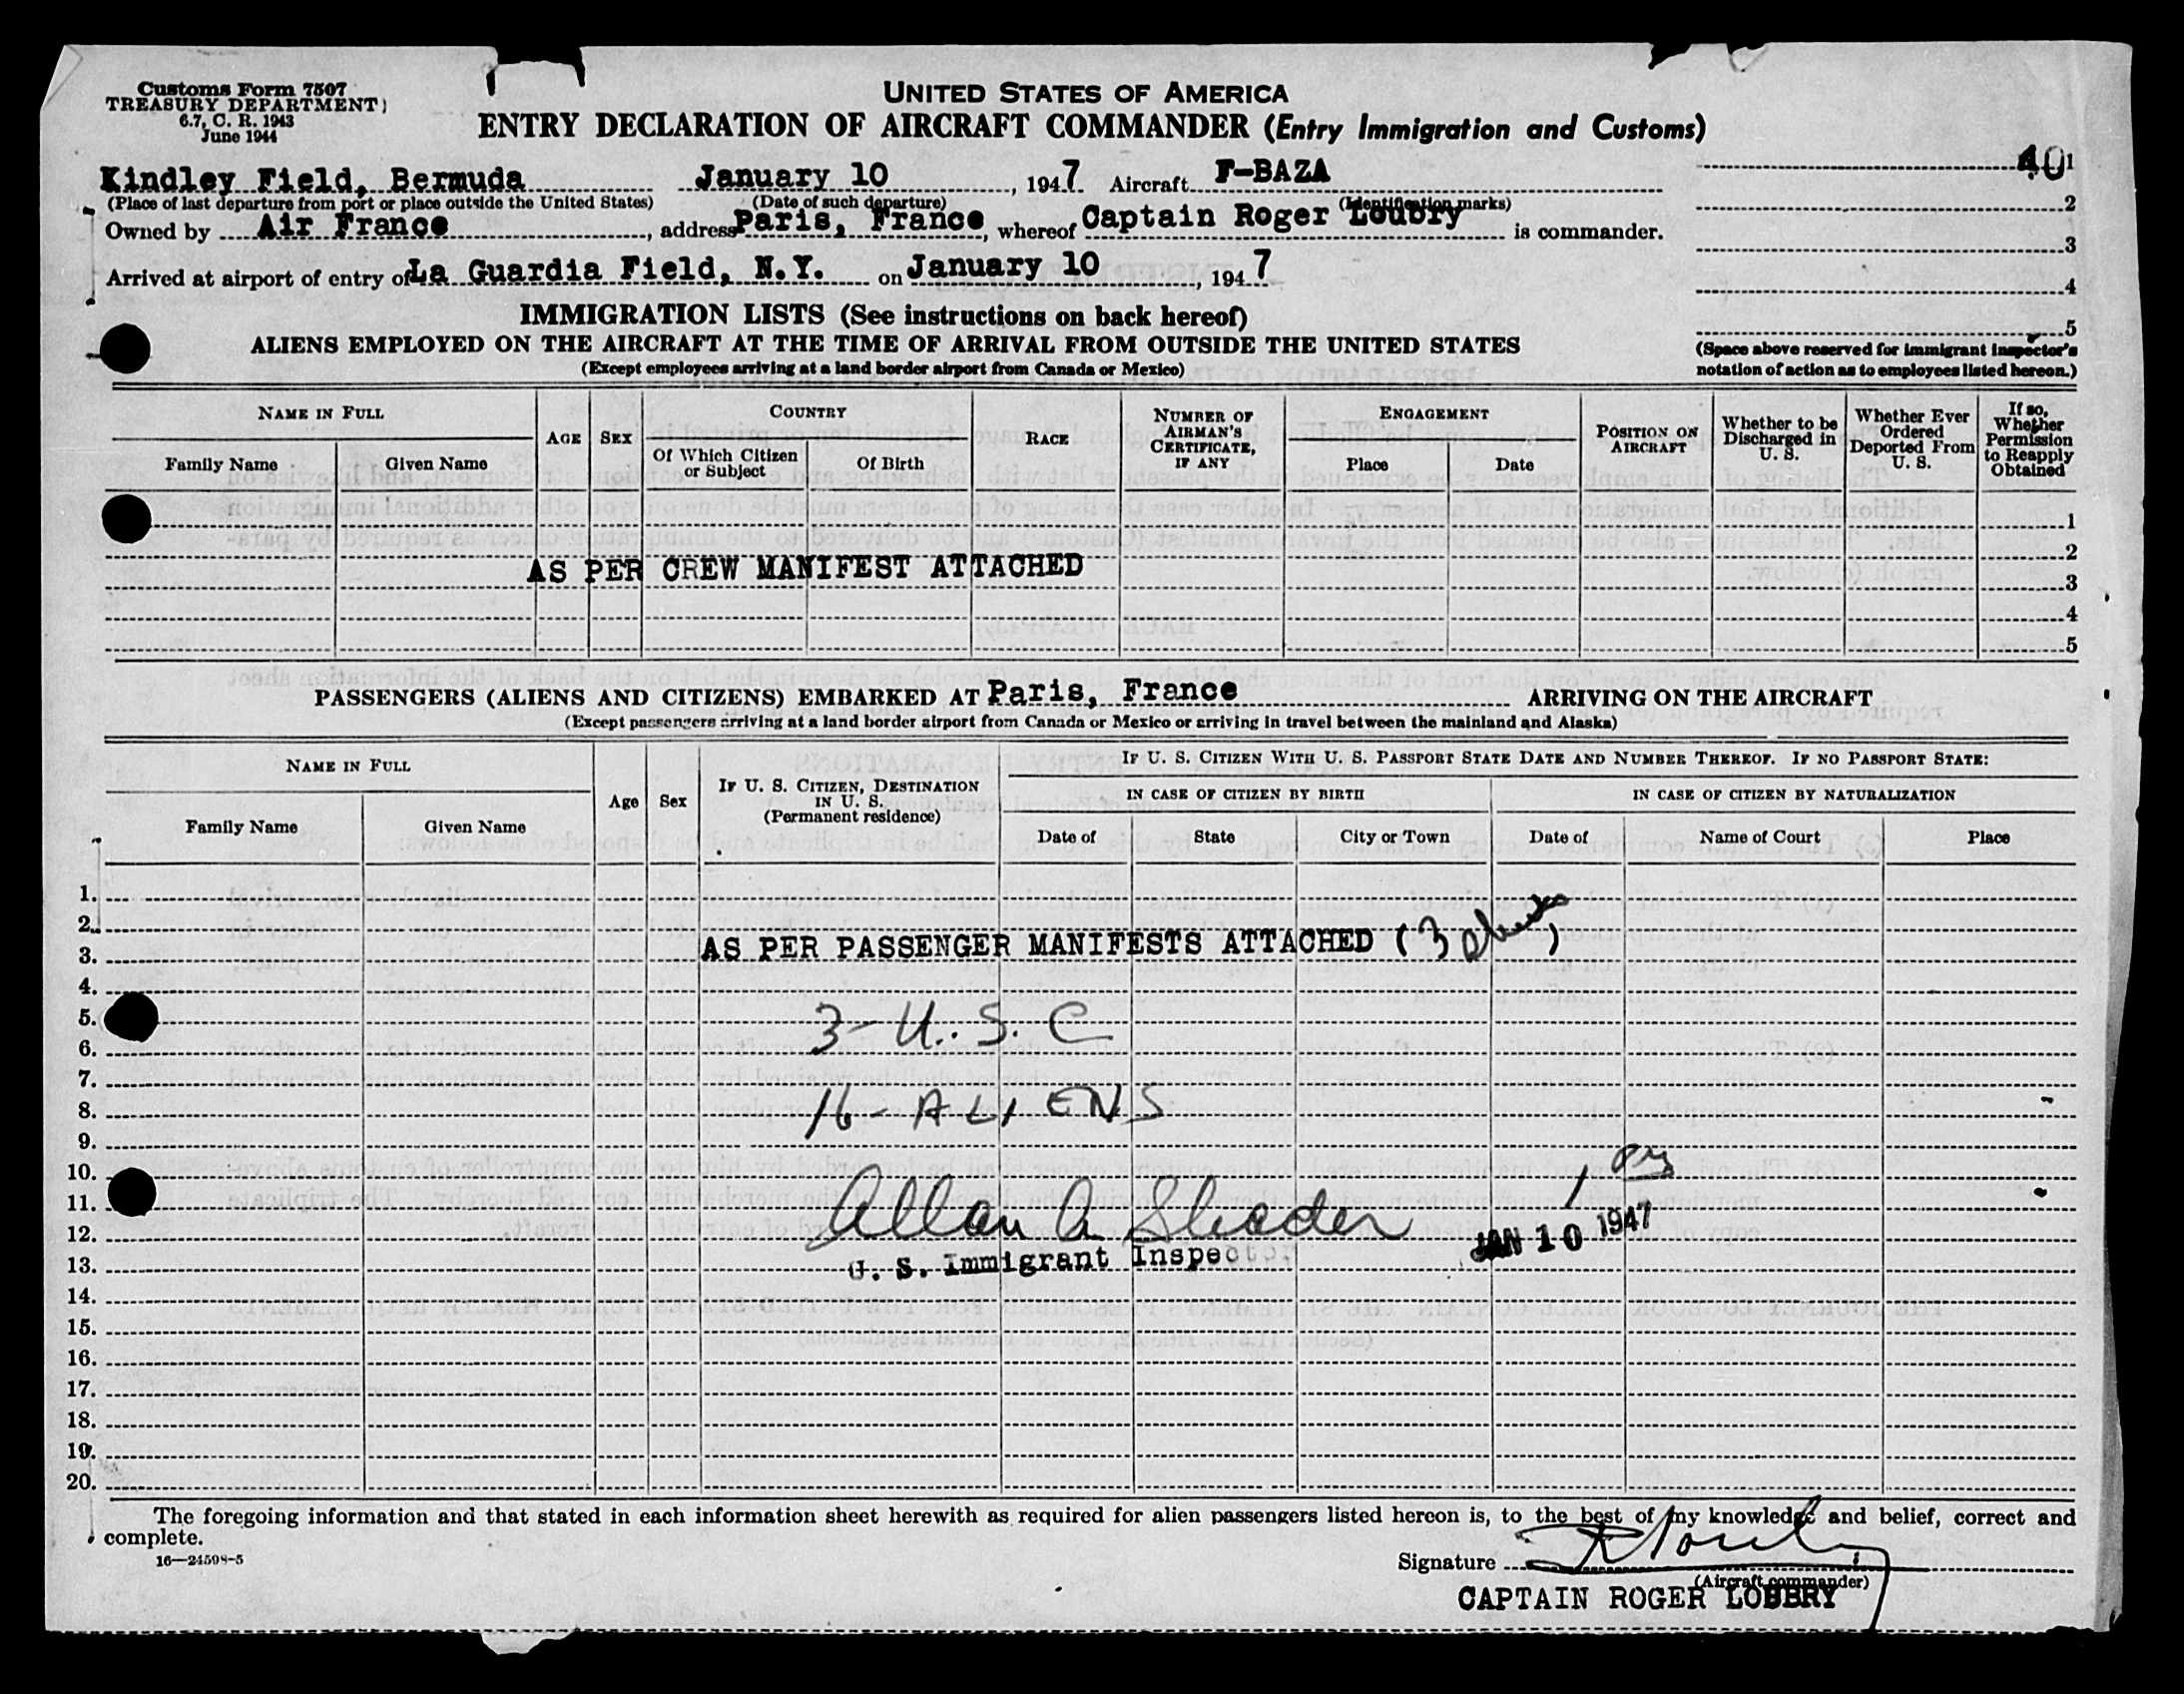 Customs Form 7507
TREASURY DEPARTMENT
6.7, C. R. 1943
June 1944
UNITED STATES OF AMERICA
ENTRY DECLARATION OF AIRCRAFT COMMANDER (Entry Immigration and Customs)
Kindley Field, Bermuda January 10, 1947 Aircraft F-BAZA
(Place of last departure from port or place outside the United States) (Date of such departure) (Identification marks)
Owned by Air France, address Paris, France, whereof Captain Roger Loubry is commander.
Arrived at airport of entry of La Guardia Field, N.Y. on January 10, 1947
40 1
2
3
4
5
(Space above reserved for immigrant inspector's
notation of action as to employees listed hereon.)
IMMIGRATION LISTS (See instructions on back hereof)
ALIENS EMPLOYED ON THE AIRCRAFT AT THE TIME OF ARRIVAL FROM OUTSIDE THE UNITED STATES
(Except employees arriving at a land border airport from Canada or Mexico)
NAME IN FULL
Family Name
Given Name
AGE
SEX
COUNTRY
Of Which Citizen
or Subject
Of Birth
RACE
NUMBER OF
AIRMAN'S
CERTIFICATE,
IF ANY
ENGAGEMENT
Place
Date
POSITION ON
AIRCRAFT
Whether to be
Discharged in
U. S.
Whether Ever
Ordered
Deported From
U. S.
If so,
Whether
Permission
to Reapply
Obtained
1
2
AS PER CREW MANIFEST ATTACHED
3
4
5
PASSENGERS (ALIENS AND CITIZENS) EMBARKED AT Paris, France ARRIVING ON THE AIRCRAFT
(Except passengers arriving at a land border airport from Canada or Mexico or arriving in travel between the mainland and Alaska)
NAME IN FULL
Family Name
Given Name
Age
Sex
IF U. S. CITIZEN, DESTINATION
IN U. S.
(Permanent residence)
IF U. S. CITIZEN WITH U. S. PASSPORT STATE DATE AND NUMBER THEREOF. IF NO PASSPORT STATE:
IN CASE OF CITIZEN BY BIRTH
IN CASE OF CITIZEN BY NATURALIZATION
Date of
State
City or Town
Date of
Name of Court
Place
1.
2.
3. AS PER PASSENGER MANIFESTS ATTACHED (3 sheets)
4.
5. 3- U. S. C
6.
7.
8. 16- ALIENS
9.
10.
11. 1
12. Allan A Shader JAN 10 1947
13. U. S. Immigrant Inspector
14.
15.
16.
17.
18.
19.
20.
The foregoing information and that stated in each information sheet herewith as required for alien passengers listed hereon is, to the best of my knowledge and belief, correct and
complete.
16—24598-5
Signature
(Aircraft commander)
CAPTAIN ROGER LOUBRY